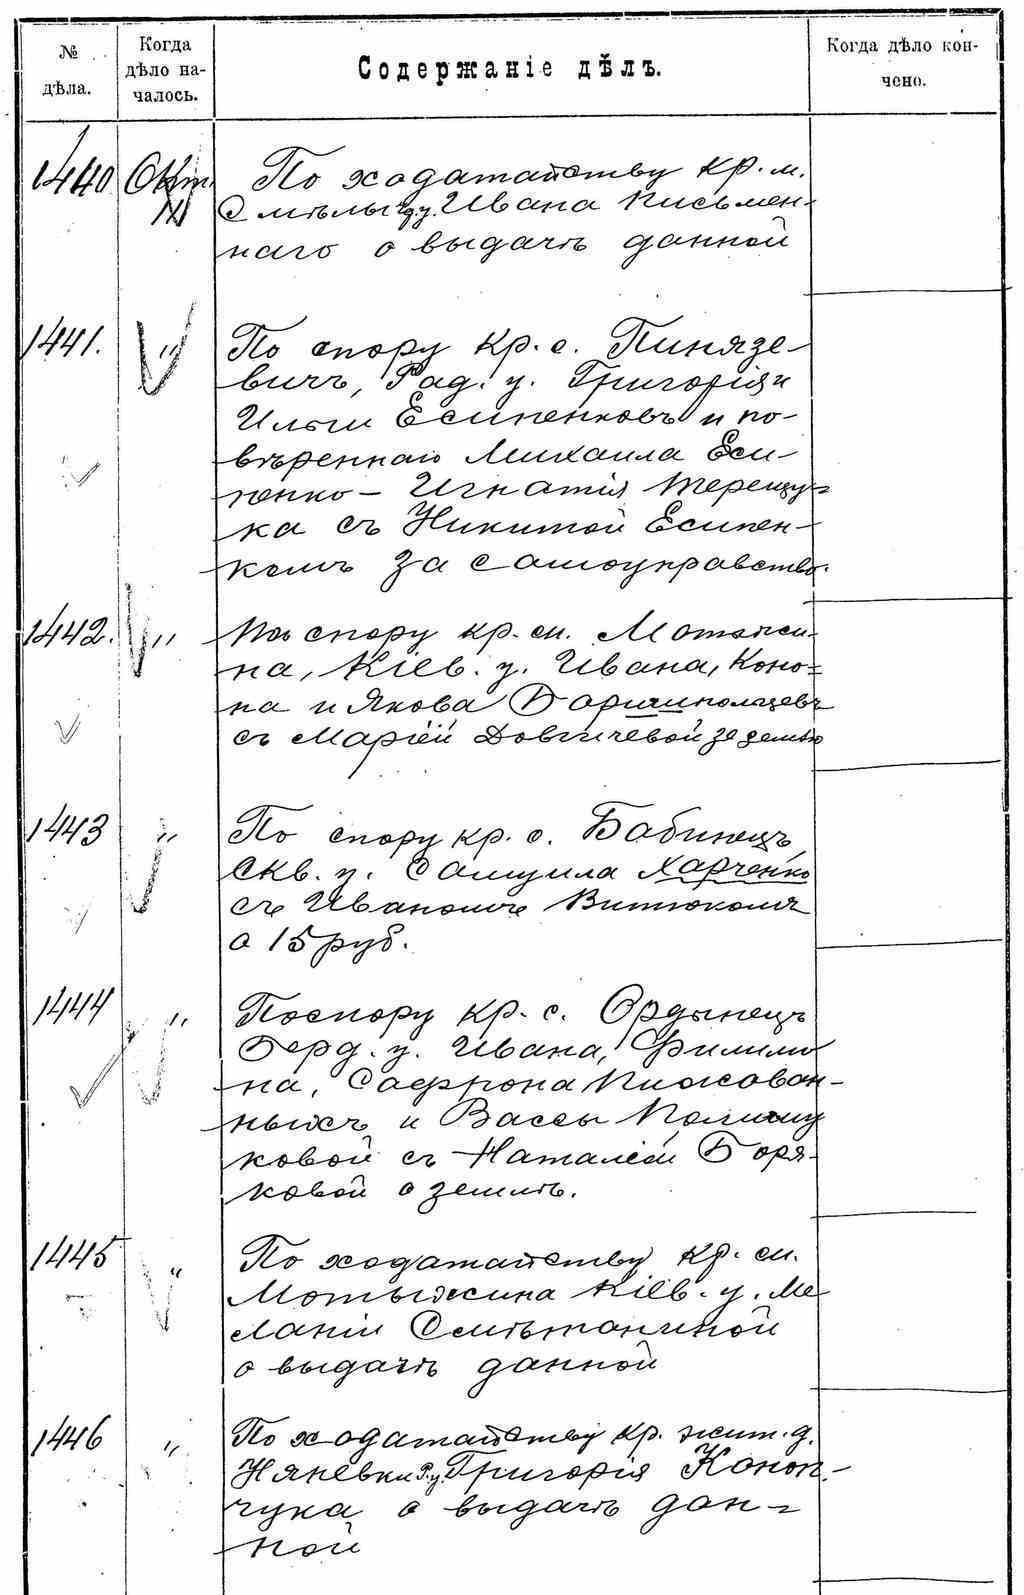 № дѣла.
Когда дѣло на-
чалось.
Содержаніе дѣлъ.
Когда дѣло кон-
чено.
1440 Окт. По ходатайству кр. м.
Смѣлы Ч.у. Ивана Письмен-
наго о выдачѣ данной
1441. " По спору кр. с. Пинязе-
вичъ, Рад. у. Григорія и
Ильи Есипенковъ и по-
вѣреннаго Михаила Еси-
пенко - Игнатія Терещу-
ка съ Никитой Есипен-
комъ за самоуправство.
1442. " По спору кр. м. Мотыжи-
на, Кіев. у. Ивана, Коно-
на и Якова Боришпольцевъ
съ Маріей Довгичевой за землю
1443 " По спору кр. с. Бабинецъ,
Скв. у. Самуила Харченко
съ Иваномъ Витюкомъ
о 15 руб.
1444 " По спору кр. с. Ордынецъ
Берд. у. Ивана, Филимо
на, Софрона Пижован-
ныхъ и Вассы Полищу
ковой съ Наталіей Боря-
ковой о землѣ.
1445 " По ходатайству кр. м.
Мотыжина Кіев. у. Ме
ланіи Смѣтаниной
о выдачѣ данной
1446 " По ходатайству кр. жит. д.
Няневки Р.у. Григорія Коноп-
чука о выдачѣ дан-
ной